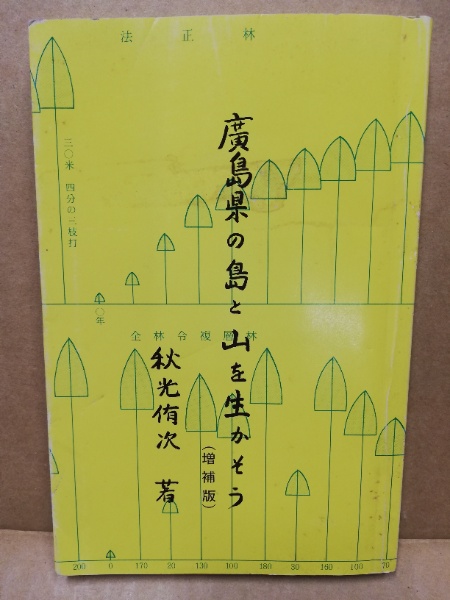 法正林
廣島県の島と山を生かそう
(増補版)
秋光侑次 著
三〇米 四分の三枝打
一〇年
全林令複層林
200 0 170 20 130 100 180 30 160 100 70